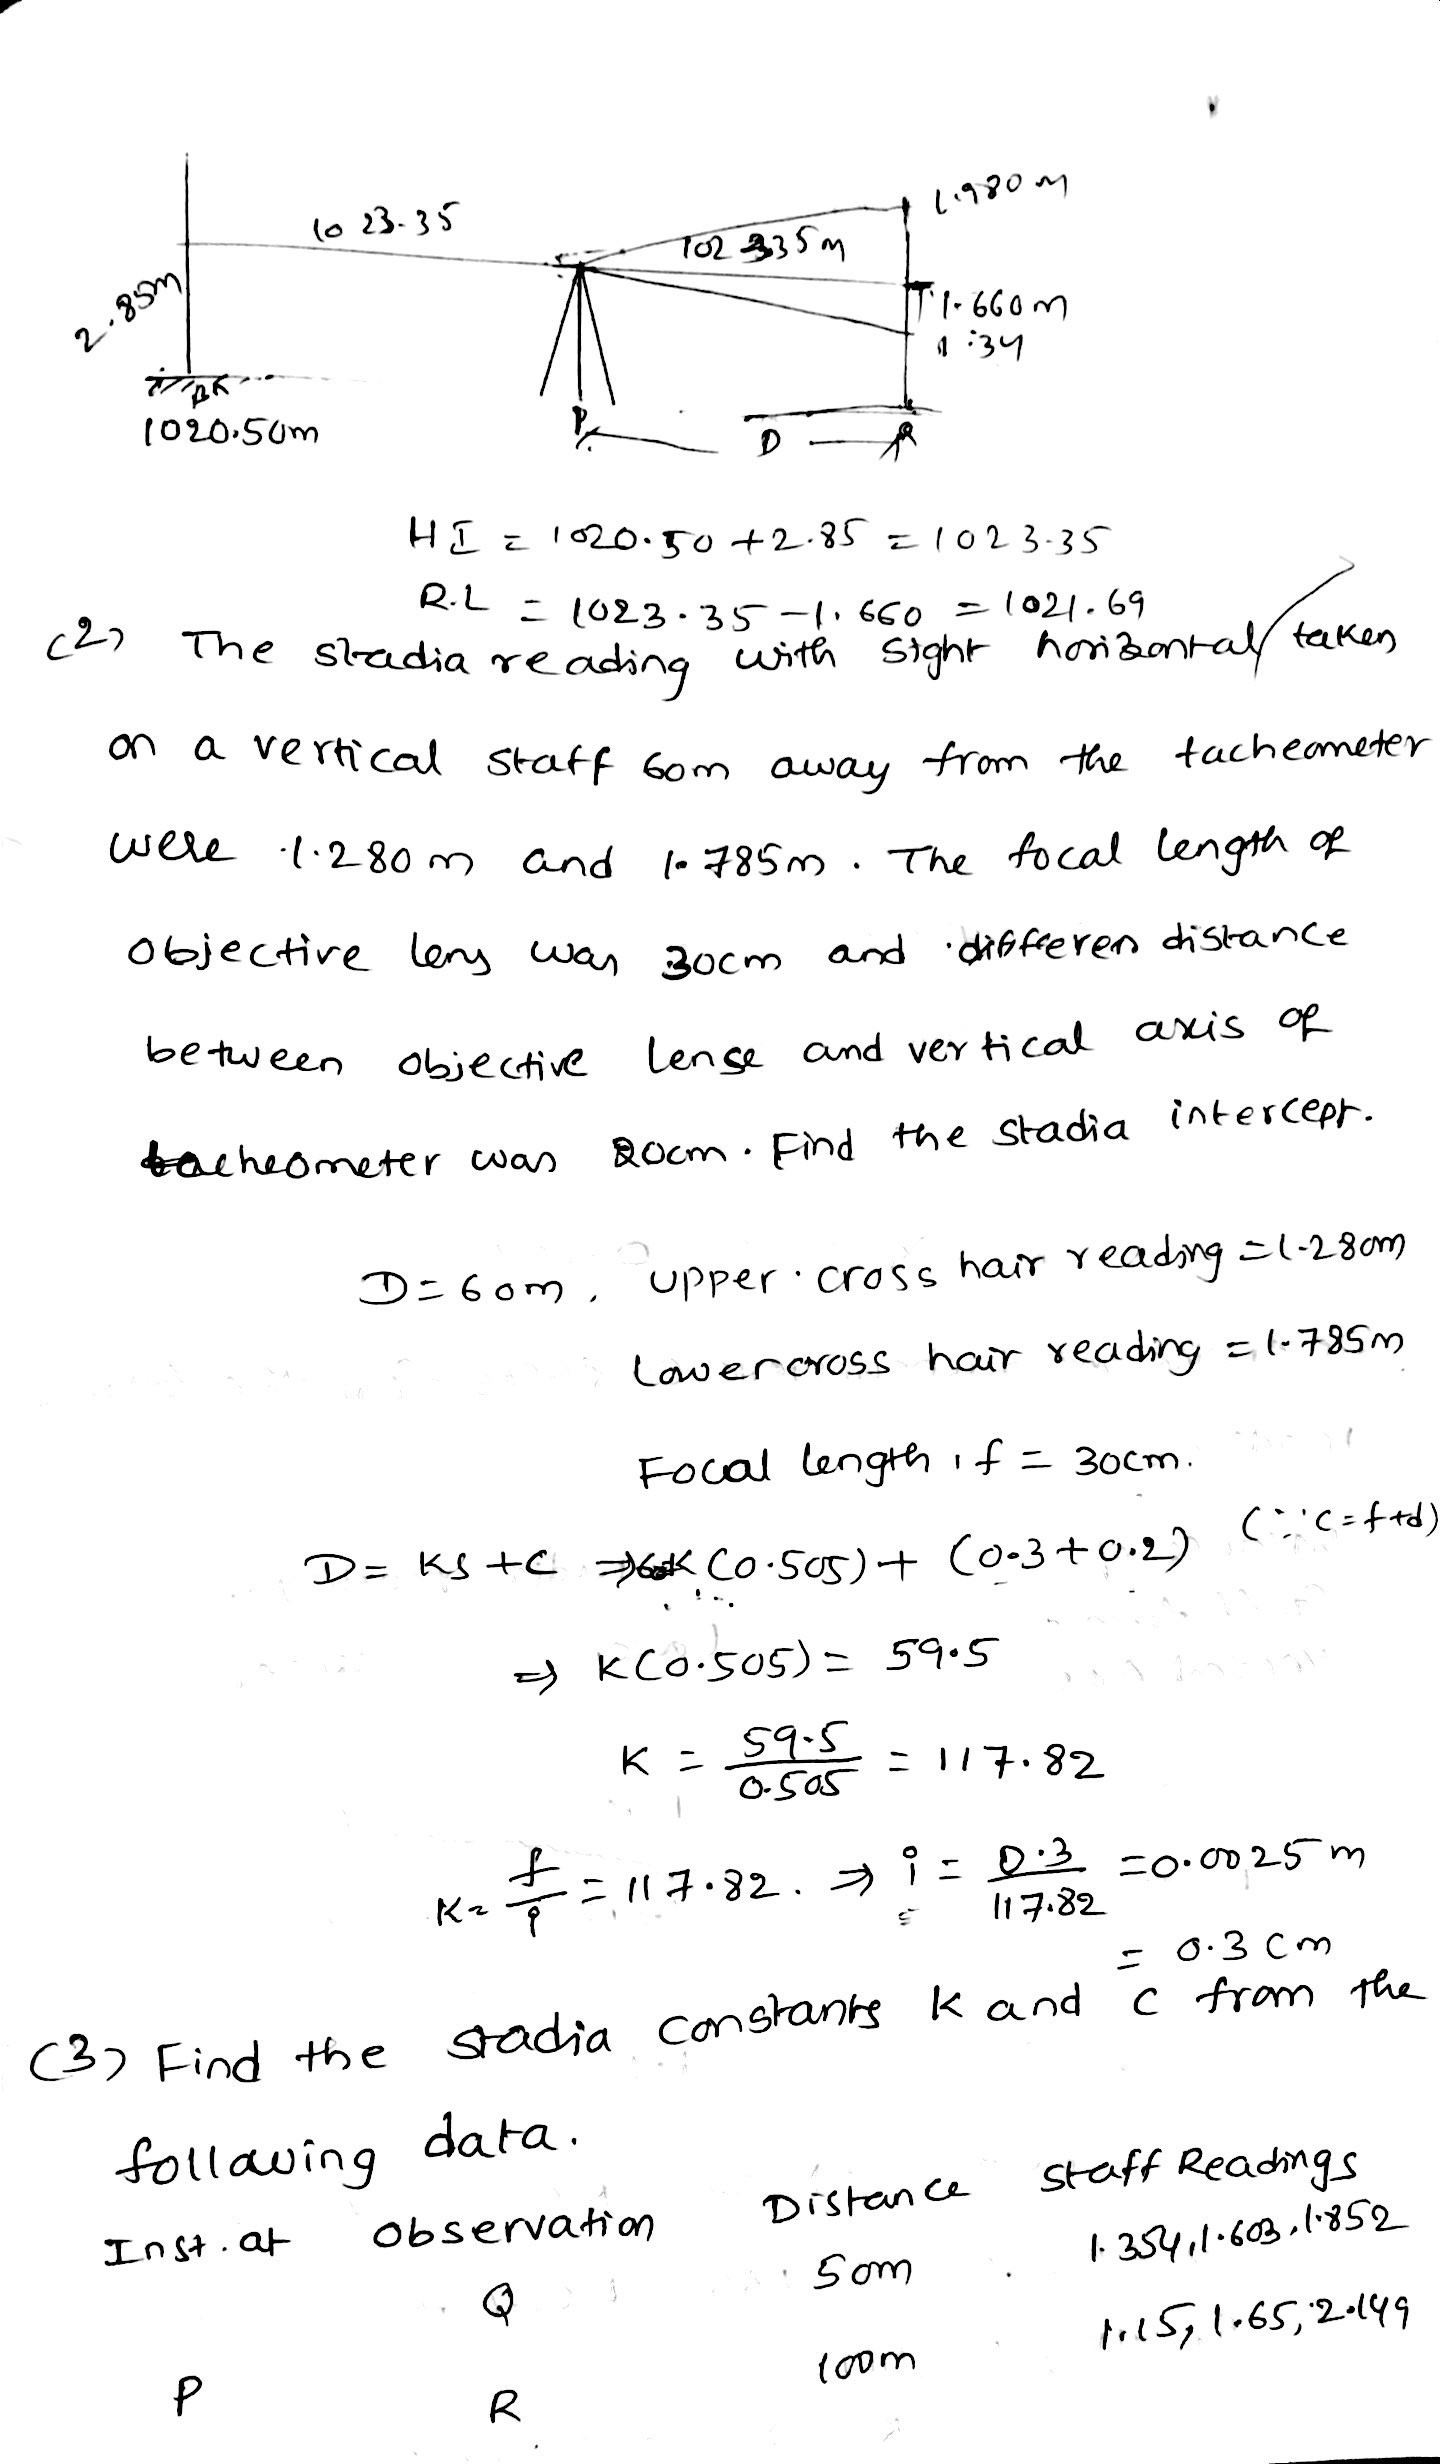 1.980 m
1023.35
102335m
2.85m
1.660m
1.34
BK
1020.50m
P
D
R
HI = 1020.50 + 2.85 = 1023.35
R.L = 1023.35 - 1.660 = 1021.69
(2) The stadia reading with sight horizontal taken
on a vertical staff 60m away from the tacheometer
were 1.280m and 1.785m. The focal length of
objective lens was 30cm and differen distance
between objective lense and vertical axis of
tacheometer was 20cm. Find the stadia intercept.
D = 60m, upper cross hair reading = 1.280m
Lower cross hair reading = 1.785m
Focal length, f = 30cm.
D = KS + C ⇒ 60 = K (0.505) + (0.3 + 0.2) (∵ C = f+d)
⇒ K(0.505) = 59.5
K = 59.5/0.505 = 117.82
K = f/i = 117.82. ⇒ i = 0.3/117.82 = 0.0025m
= 0.3 cm
(3) Find the stadia constants K and C from the
following data.
Inst. at Observation Distance Staff Readings
Q 50m 1.354, 1.603, 1.852
P R 100m 1.15, 1.65, 2.149